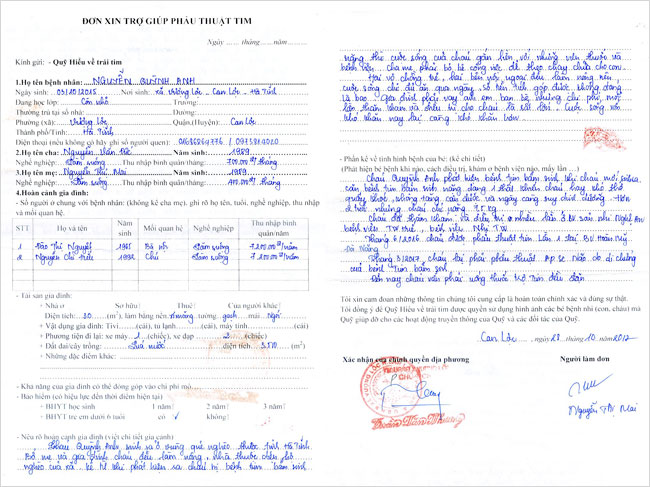 ĐƠN XIN TRỢ GIÚP PHẪU THUẬT TIM
Ngày ...... tháng ......năm..........
Kính gửi: - Quỹ Hiểu về trái tim
1.Họ tên bệnh nhân: NGUYỄN QUỲNH ANH
Ngày sinh: 03/10/2015 Nơi sinh: xã Vượng Lộc - Can Lộc - Hà Tĩnh
Đang học lớp: Còn nhỏ Trường:
Thường trú tại số nhà: Đường:
Phường (xã): Vượng Lộc Quận,(Huyện): Can Lộc
Thành phố/Tỉnh: Hà Tĩnh
Điện thoại (nếu không có hãy ghi số người quen):
2.Họ tên cha: Nguyễn Văn Năm sinh: 1989
Nghề nghiệp: Làm ruộng Thu nhập bình quân/tháng: 700.000đ/tháng
3.Họ tên mẹ: Nguyễn Thị Mai Năm sinh: 1989
Nghề nghiệp: Làm ruộng Thu nhập bình quân/tháng: 400.000đ/tháng
4.Hoàn cảnh gia đình:
- Số người ở chung với bệnh nhân: (không kê cha mẹ), ghi rõ họ tên, tuổi, nghề nghiệp, thu nhập
và mối quan hệ.
STT Họ và tên Năm sinh Mối quan hệ Nghề nghiệp Thu nhập bình quân/năm
1 Đào Thị Nguyệt Bà nội Làm ruộng 7.200.000đ/năm
2 Nguyễn Chí Chú Làm ruộng 7.200.000đ/năm
- Tài sản gia đình:
+ Nhà ở Sở hữu? Thuê? Của người khác?
Diện tích: 80 (m²), làm bằng nền xi măng tường gạch mái ngói
+ Vật dụng gia đình: Tivi (cái), tủ lạnh (cái), máy tính (cái).
+ Phương tiện đi lại: xe máy 1 (chiếc), xe đạp 2 (chiếc)
+ Đất đai/cây trồng: Lúa nước diện tích: (m²)
+ Những đặc điểm khác:
- Khả năng của gia đình có thể đóng góp vào chi phí mổ
- Bảo hiểm (có hiệu lực đến thời điểm hiện tại)
+ BHYT học sinh 1 năm? 2 năm? 3 năm?
+ BHYT trẻ em dưới 6 tuổi có ✓ không?
- Nêu rõ hoàn cảnh gia đình (viết chi tiết gia cảnh)
Cháu Quỳnh Anh sinh ra ở vùng quê nghèo thuộc tỉnh Hà Tĩnh.
Bố mẹ và gia đình cháu đều làm nông, nhà thuộc diện hộ
nghèo của xã. Kể từ khi phát hiện ra cháu bị bệnh tim bẩm sinh
nặng thì cuộc sống của cháu gắn liền với những viên thuốc và
bệnh viện, cha mẹ phải bỏ bê công việc để theo chạy chữa cho con.
Hai vợ chồng trẻ, hai bên nội ngoại đều làm nông nên
cuộc sống chỉ đủ ăn qua ngày, số tiền tiết góp được không đáng
là bao. Gia đình phải vay anh em bạn bè nhưng chi phí mỗi
lần thăm khám và điều trị cho cháu là rất lớn. Cuộc sống đã
khó khăn nay lại càng khó khăn hơn.
- Phần kể về tình hình bệnh của bé: (kể chi tiết)
(Phát hiện bị bệnh khi nào, cách điều trị, khám ở bệnh viện nào, mấy lần ...)
Cháu Quỳnh Anh phát hiện bệnh tim bẩm sinh khi cháu mới sinh ra.
căn bệnh tim bẩm sinh nặng dạng 1 thất khiến cháu hay khó thở
quấy khóc, không tăng cân được và ngày càng suy dinh dưỡng. Hơn
nhưng cháu chỉ nặng 7.5 kg.
Cháu đã thăm khám và điều trị ở nhiều lần ở BV sản nhi Nghệ An
bệnh viện TW Huế, bệnh viện Nhi TW.
Tháng 6/2016 cháu được phẫu thuật tim lần 1 tại BV Hoàn Mỹ
Đà Nẵng.
Tháng 3/2017 cháu lại phải phẫu thuật Áp xe Não do di chứng
của bệnh tim bẩm sinh.
Đến nay cháu vẫn phải uống thuốc trợ tim đều đặn
Tôi xin cam đoan những thông tin chúng tôi cung cấp là hoàn toàn chính xác và đúng sự thật.
Tôi đồng ý để Quỹ Hiểu về trái tim được quyền sử dụng hình ảnh các bé bệnh nhi (con, cháu) mà
Quỹ giúp đỡ cho các hoạt động truyền thông của Quỹ và các đối tác của Quỹ.
Can Lộc, ngày 20 tháng 10 năm 2017
Xác nhận của chính quyền địa phương Người làm đơn
Nguyễn Thị Mai